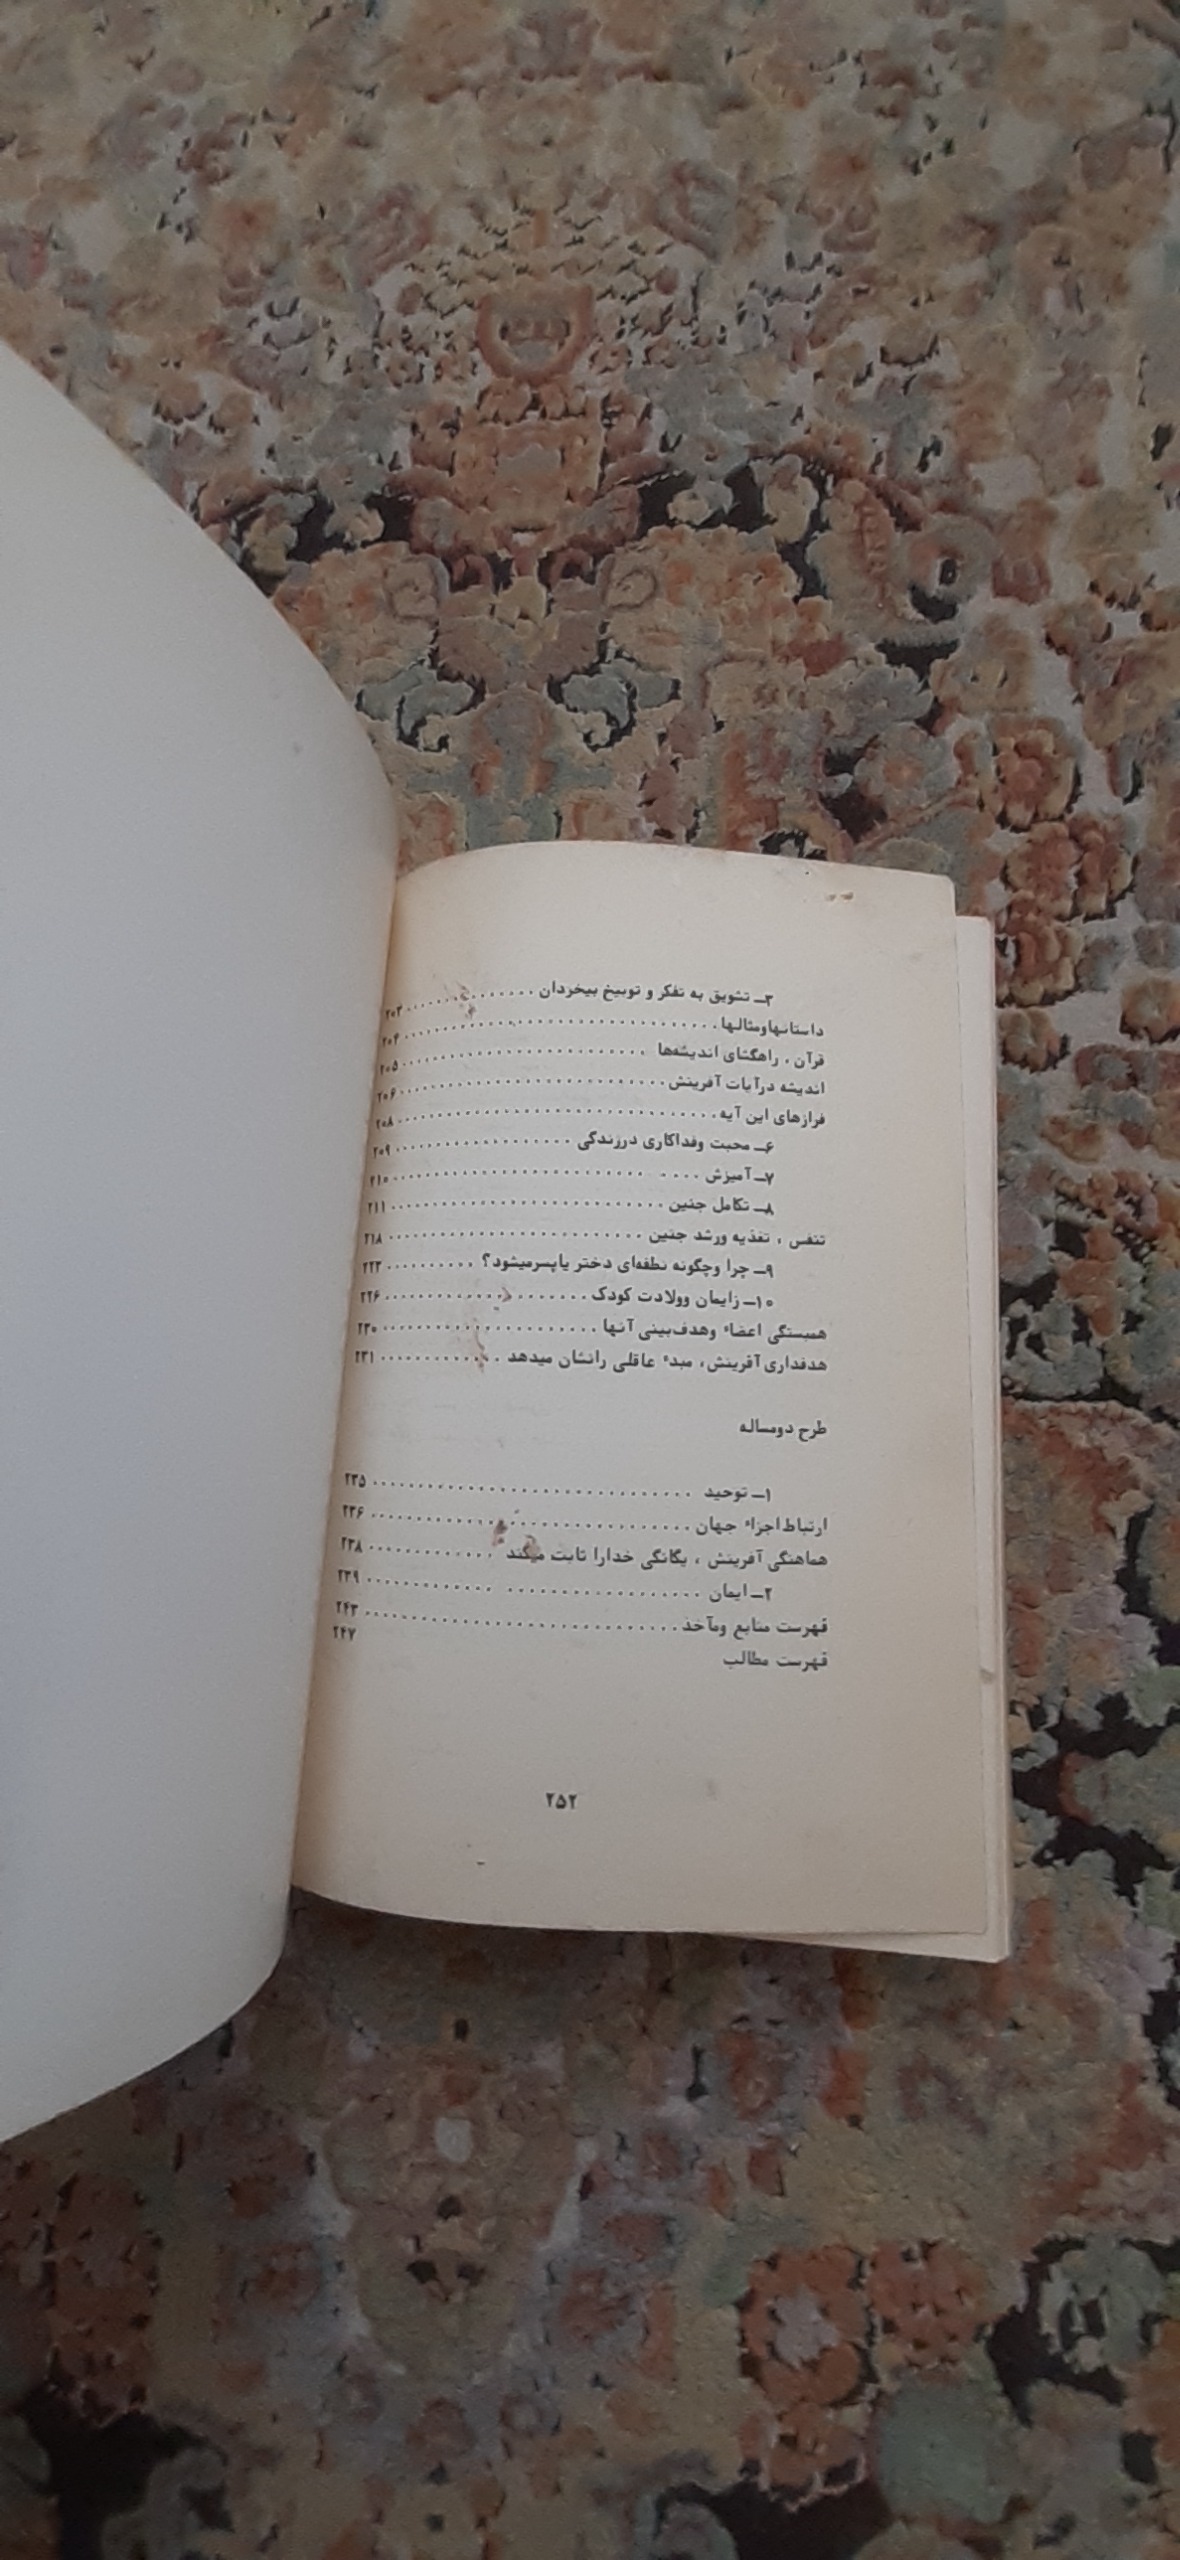 ۳ـ تشویق به تفکر و توبیخ بیخردان .............. ۲۰۳
داستانها ومثالها .................................. ۲۰۴
قرآن ، راهگشای اندیشه‌ها ......................... ۲۰۵
اندیشه درآیات آفرینش ............................ ۲۰۶
فرازهای این آیه .................................. ۲۰۸
۶ـ محبت وفداکاری درزندگی ................... ۲۰۹
۷ـ آمیزش .... ......................... ۲۱۰
۸ـ تکامل جنین ............................ ۲۱۱
تنفس ، تغذیه ورشد جنین .......................... ۲۱۸
۹ـ چرا وچگونه نطفه‌ای دختر یاپسرمیشود؟ .......... ۲۲۳
۱۰ـ زایمان وولادت کودک ..................... ۲۲۶
همبستگی اعضاء وهدف‌بینی آنها ...................... ۲۳۰
هدفداری آفرینش، مبدء عاقلی رانشان میدهد ............ ۲۳۱
طرح دومساله
۱ـ توحید ................................ ۲۳۵
ارتباط اجزاء جهان ................................ ۲۳۶
هماهنگی آفرینش ، یگانگی خدارا ثابت میکند ............. ۲۳۸
۲ـ ایمان ................... ............. ۲۳۹
فهرست منابع ومآخذ ................................ ۲۴۳
فهرست مطالب ۲۴۷
۲۵۲